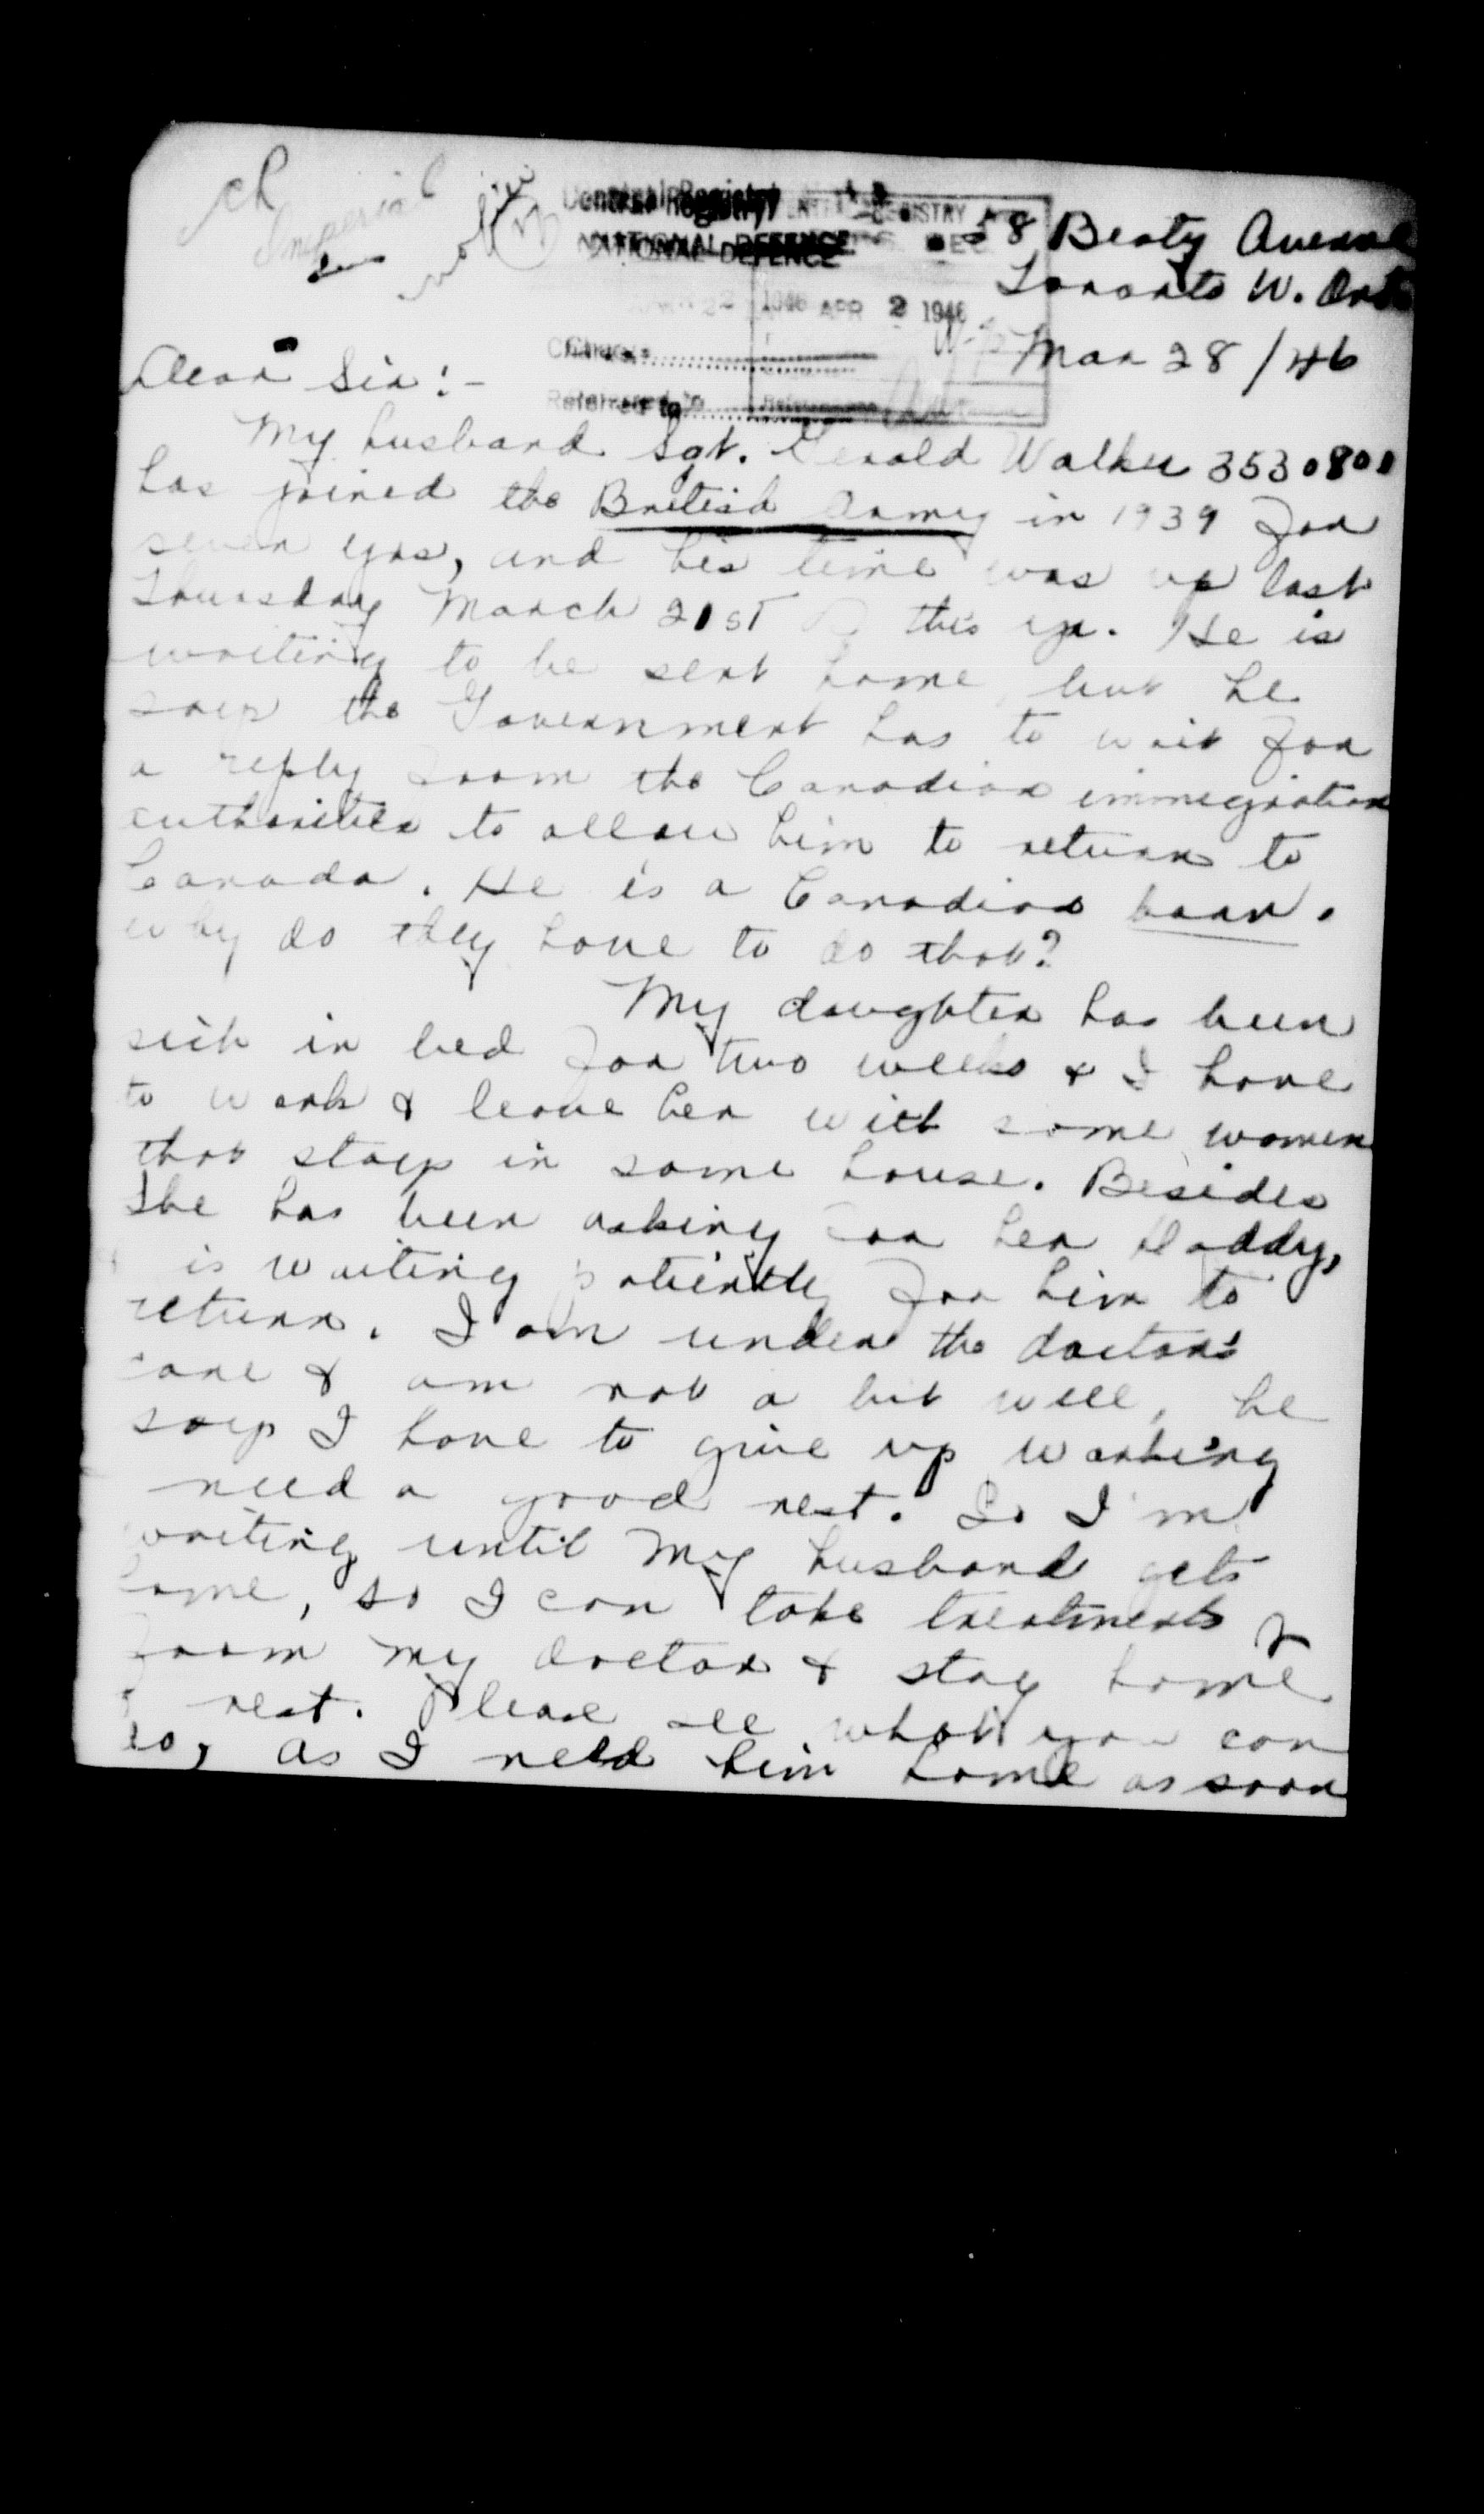 Imperial
Central Registry
REGISTRY
NATIONAL DEFENCE
1946 APR 2 1946
Referred to
58 Beaty Avenue
Toronto W. Ont
Mar 28/46
Dear Sir:-
My husband Sgt. Gerald Walker 3530800
has joined the British Army in 1939 for
seven yrs, and his time was up last
Thursday March 21ST this yr. He is
waiting to be sent home, but he
says the Government has to wait for
a reply from the Canadian immigration
authorities to allow him to return to
Canada. He is a Canadian born.
why do they have to do that?
My daughter has been
sick in bed for two weeks & I have
to work & leave her with some women
that stays in same house. Besides
She has been asking for her Daddy,
& is waiting patiently for him to
return. I am under the doctor's
care & am not a bit well, he
says I have to give up working
need a good rest. So I'm
waiting until my husband gets
home, so I can take treatments
from my doctor & stay home
& rest. Please see what you can
do, as I need him home as soon